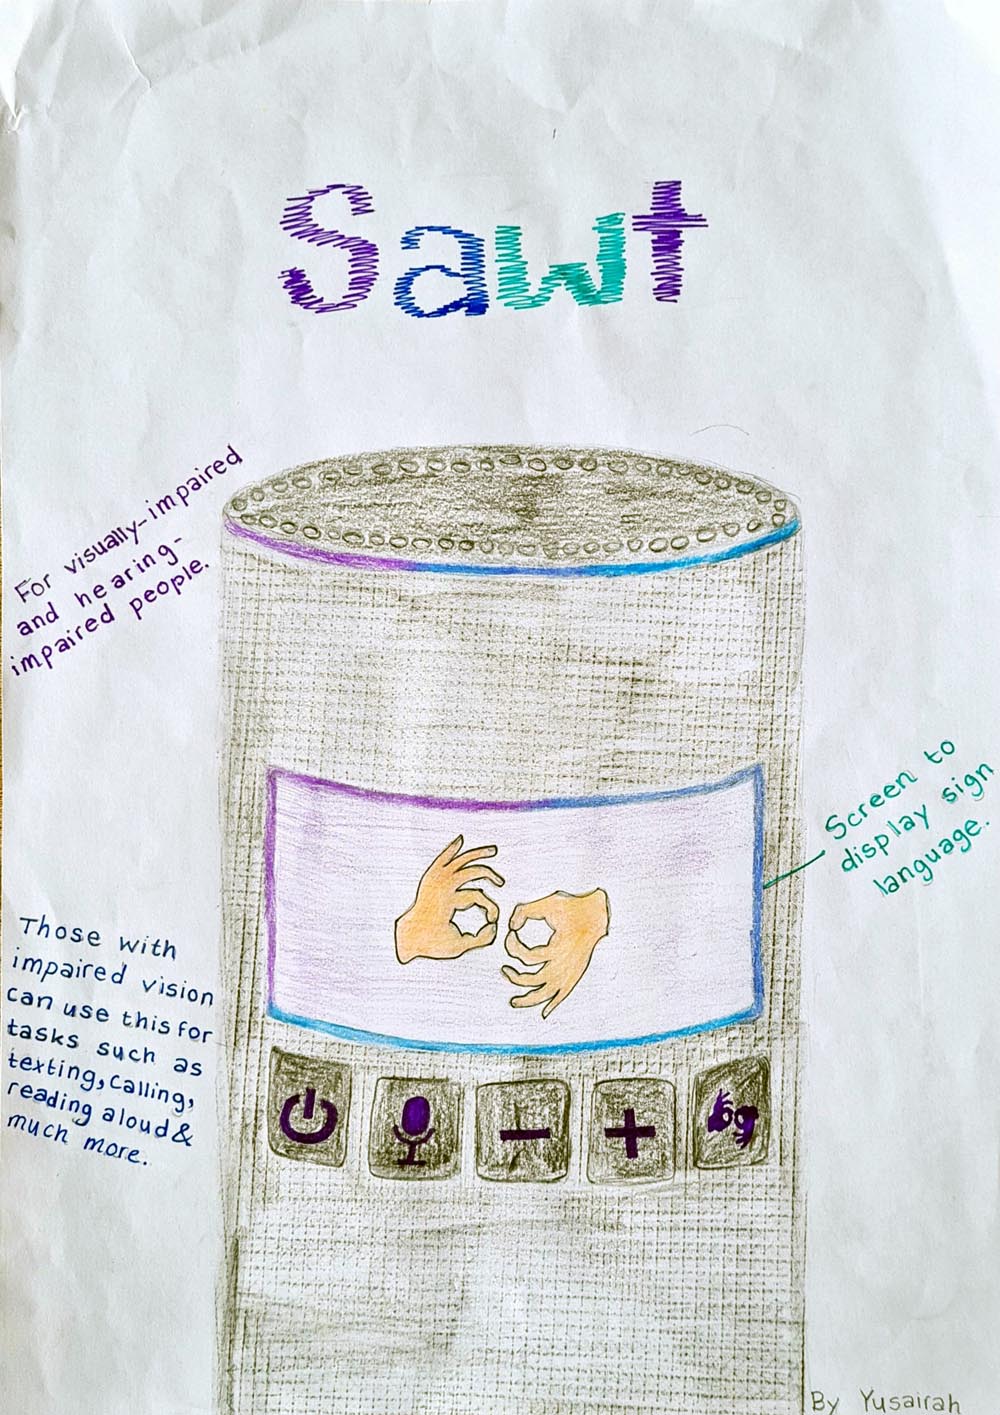 Sawt
For visually-impaired
and hearing-
impaired people.
Screen to
display sign
language.
Those with
impaired vision
can use this for
tasks such as
texting, calling,
reading aloud &
much more.
By Yusairah